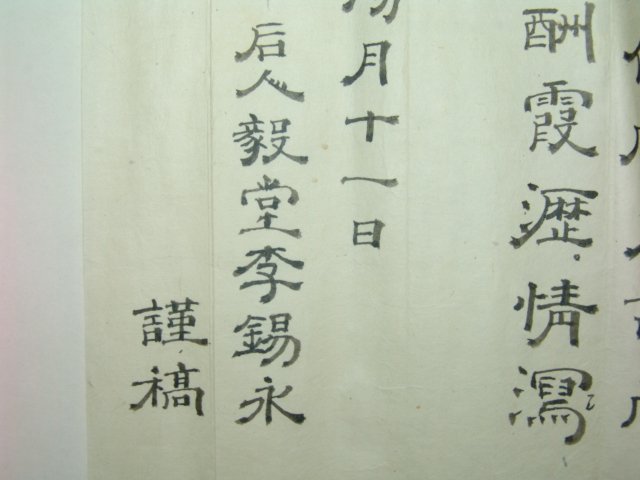 酬霞瀝情瀉
月十一日
后人毅堂李錫永
謹稿